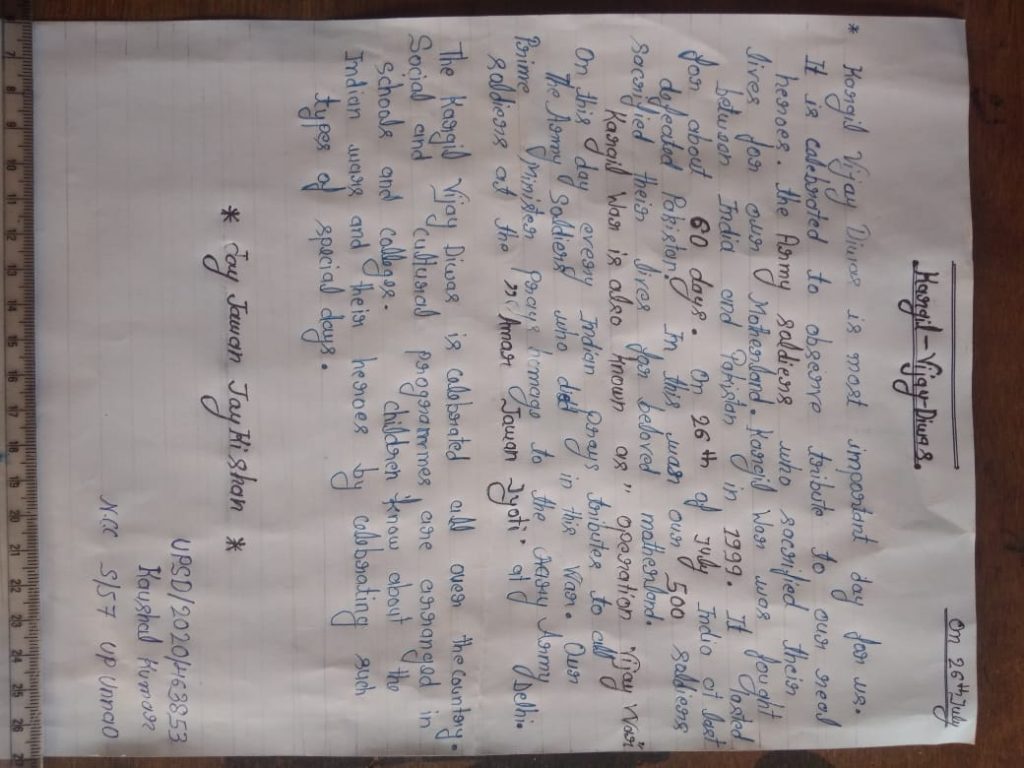 On 26th July
Kargil-Vijay-Diwas.
* Kargil Vijay Diwas is most important day for us.
It is celebrated to observe tribute to our real
heroes. the Army soldiers who sacrified their
lives for our Motherland. Kargil War was fought
between India and Pakistan in 1999. It lasted
for about 60 days. On 26th of July India at last
defeated Pakistan. In this war our 500 soldiers
sacrified their lives for beloved motherland.
Kargil War is also known as " operation Vijay War"
On this day every Indian prays tributes to all
The Army Soldiers who died in this War. Our
Prime Minister prays homage to the every Army
soldiers at the "Amar Jawan Jyoti. at Delhi.
The Kargil Vijay Diwas is celebrated all over the country.
Social and cultural programmes are arranged in
schools and colleges. children know about the
Indian wars and their heroes by celebrating such
types of special days.
* Jay Jawan Jay Kishan *
UPSD/2020/4638853
Kaushal Kumar
NCC 5/57 UP Unnao
7 8 9 10 11 12 13 14 15 16 17 18 19 20 21 22 23 24 25 26 27